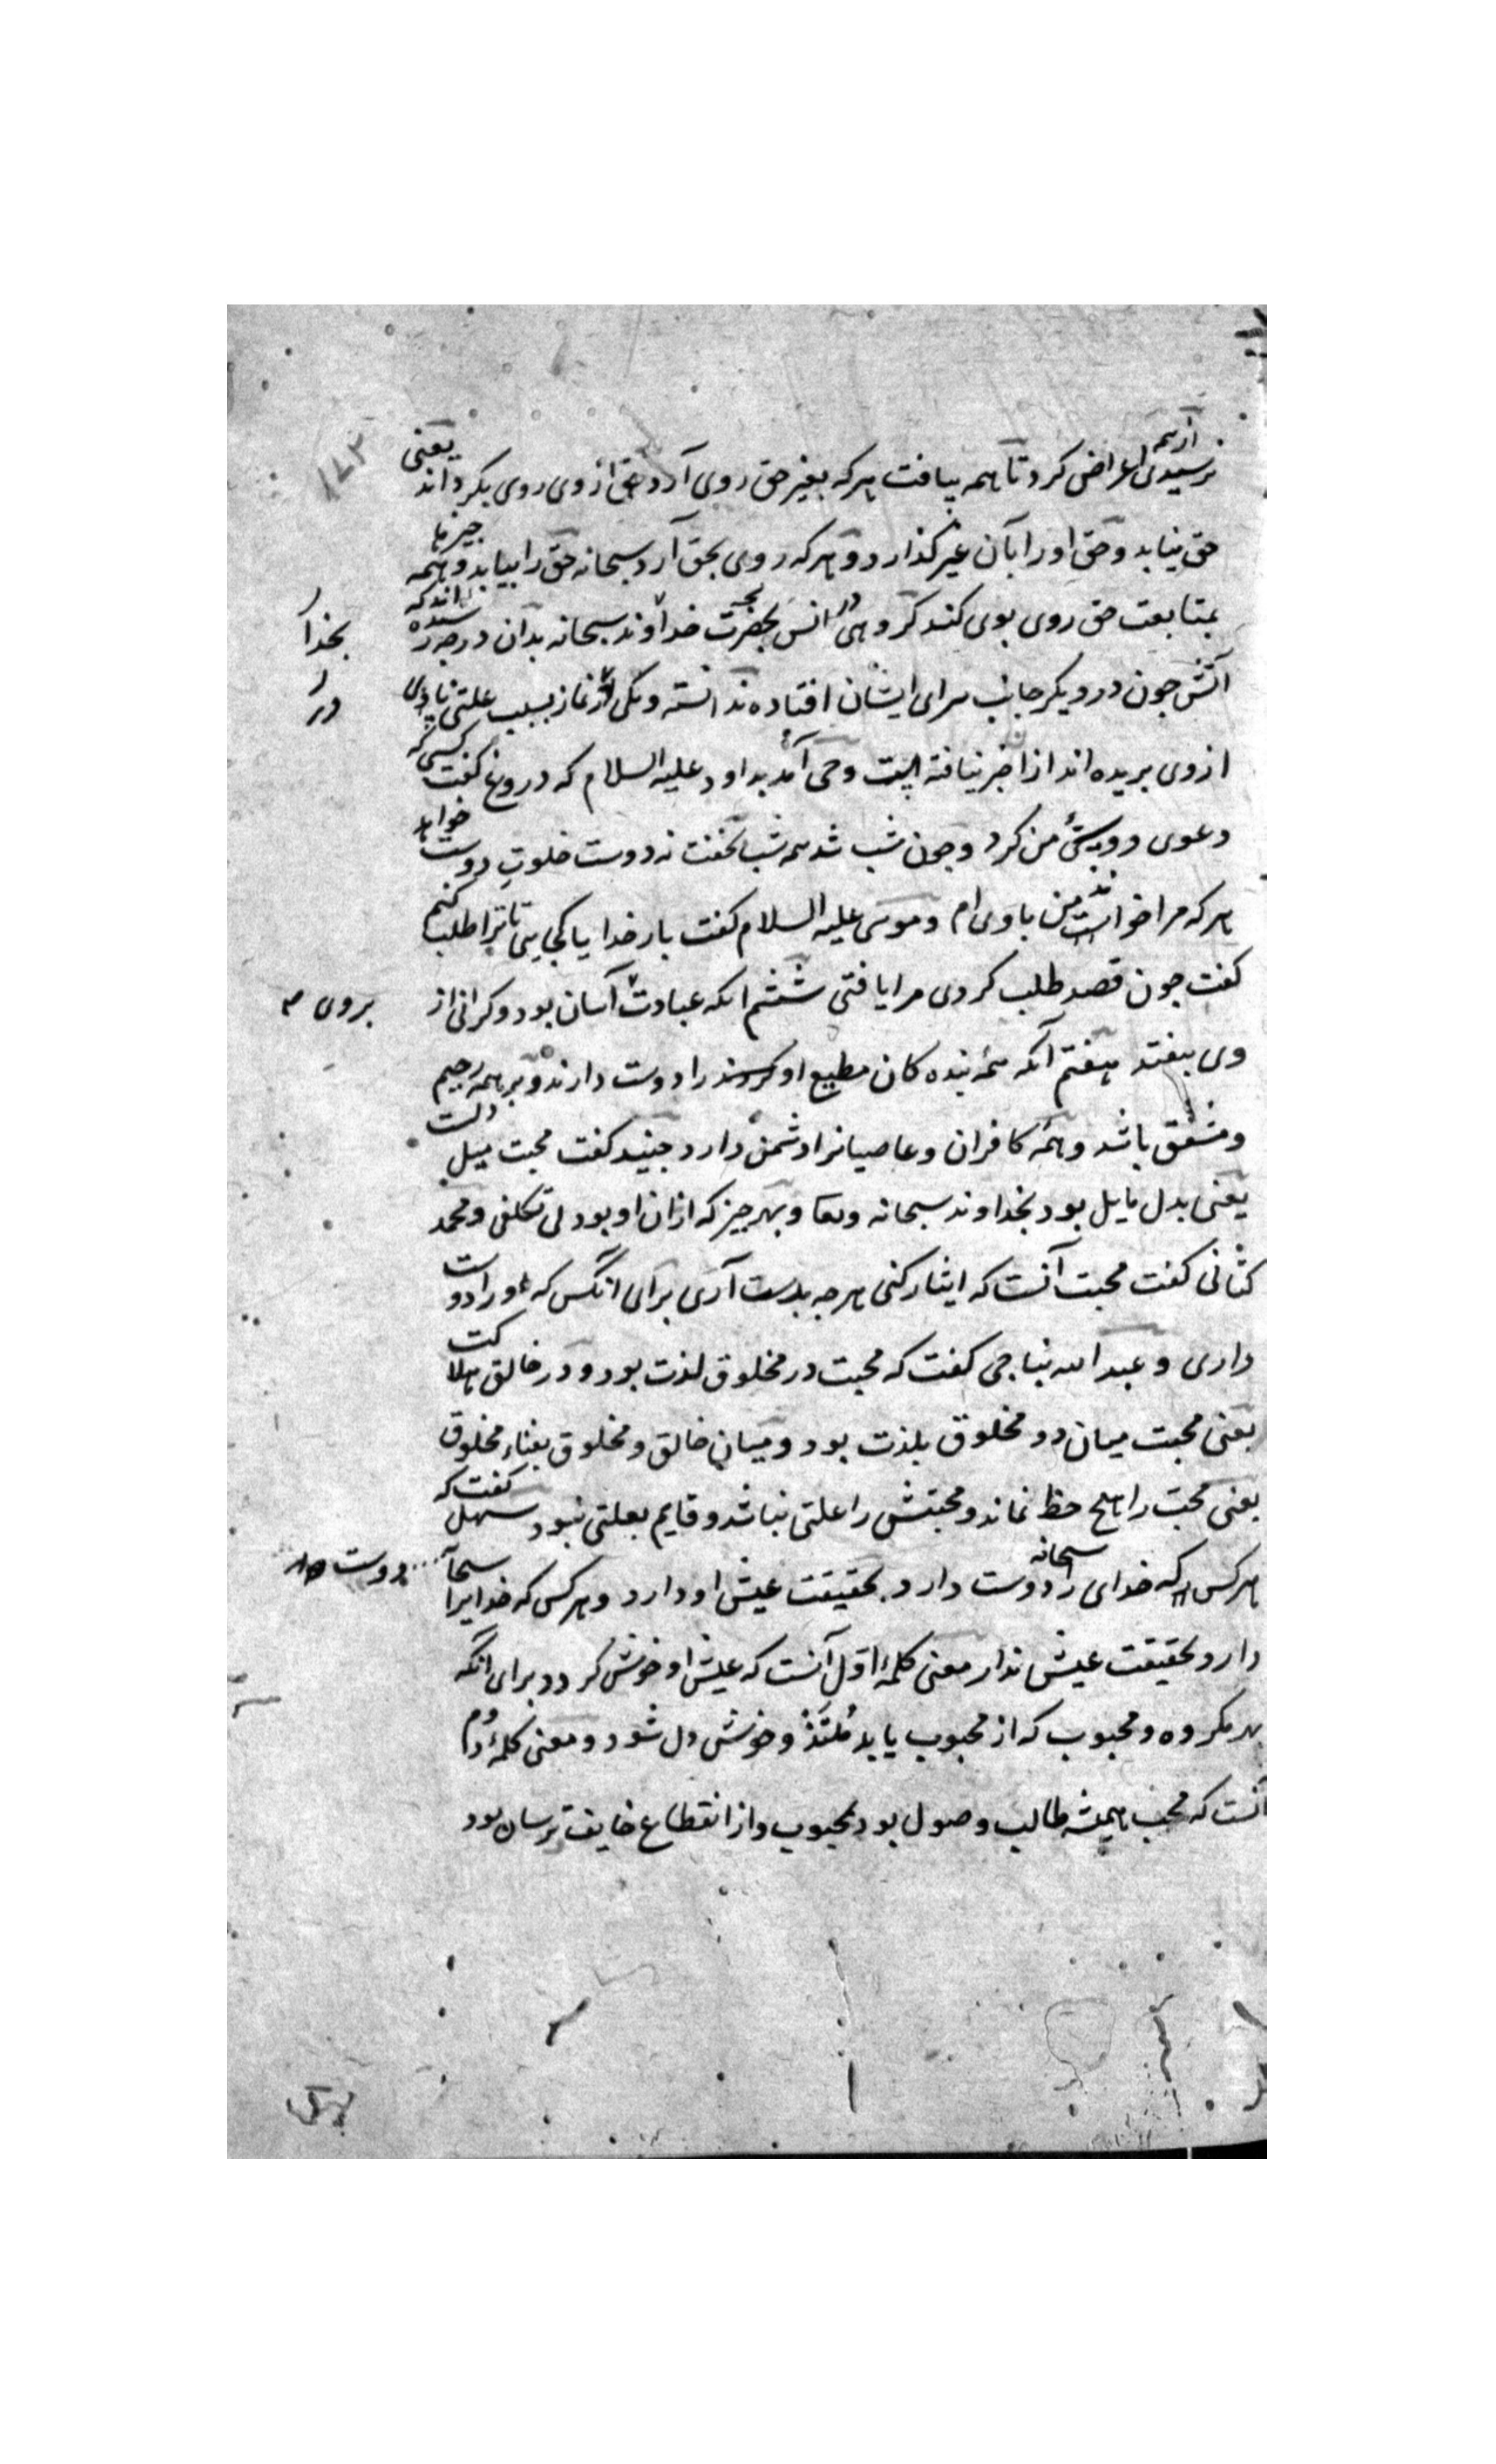 نرسیدی ازهمه اعراض کرد تا همه بیافت هرکه بغیر حق روی آرد حق ازوی روی بکرداند یعنی
حق نیابد و حق اورا بآن غیر کذارد و هرکه روی بحق آرد سبحانه حق را بیابد و همه جیزها
بمتابعت حق روی بوی کنند کروهی در انس بحضرت خداوند سبحانه بدان درجه رسیده اند که
آتش جون در دیکر جانب سرای ایشان افتاده ندانسته و یکی در نماز بسبب علتی پای
ازوی بریده اند ازا خبر نیافته است وحی آمد بداود علیه السلام که دروغ کفت کسی که
دعوی دوستی من کرد و جون شب شد همه شب بخفت نه دوست خلوت دوست خواهد
هرکه مرا خواست من با وی ام و موسی علیه السلام کفت بار خدایا کجایی تا ترا طلب کنم
کفت جون قصد طلب کردی مرا یافتی ششم انکه عبادت آسان بود و کرانی از بروی
وی بیفتد هفتم آنکه همه بنده کان مطیع او را دوست دارند و بر همه رحیم
و مشفق باشد و همه کافران و عاصیانرا دشمن دارد جنید کفت محبت میل دلست
یعنی بدل مایل بود بخداوند سبحانه و تعا و بهر جیز که ازان او بود بی تکلفی و محمد
کتانی کفت محبت آنست که ایثار کنی هرجه بدست آری برای انکس که اورا دوست
داری و عبد الله نباجی کفت که محبت در مخلوق لذت بود و در خالق هلاکت
یعنی محبت میان دو مخلوق بلذت بود و میان خالق و مخلوق بفناء مخلوق
یعنی محبت را هیج حظ نماند و محبتش را علتی نباشد و قایم بعلتی نبود سهل کفت که
هرکس که خدای را سبحانه دوست دارد بحقیقت عیش او دارد و هرکس که خدایرا سبحا دوست
دارد بحقیقت عیش ندارد معنی کلمهٔ اول آنست که عیش او خوش کردد برای انکه
بهر مکروه و محبوب که از محبوب یابد مُلتَذ و خوش دل شود و معنی کلمهٔ دوم
آنست که محب همیشه طالب وصول بود بمحبوب و از انقطاع خایف ترسان بود
بخدا
در